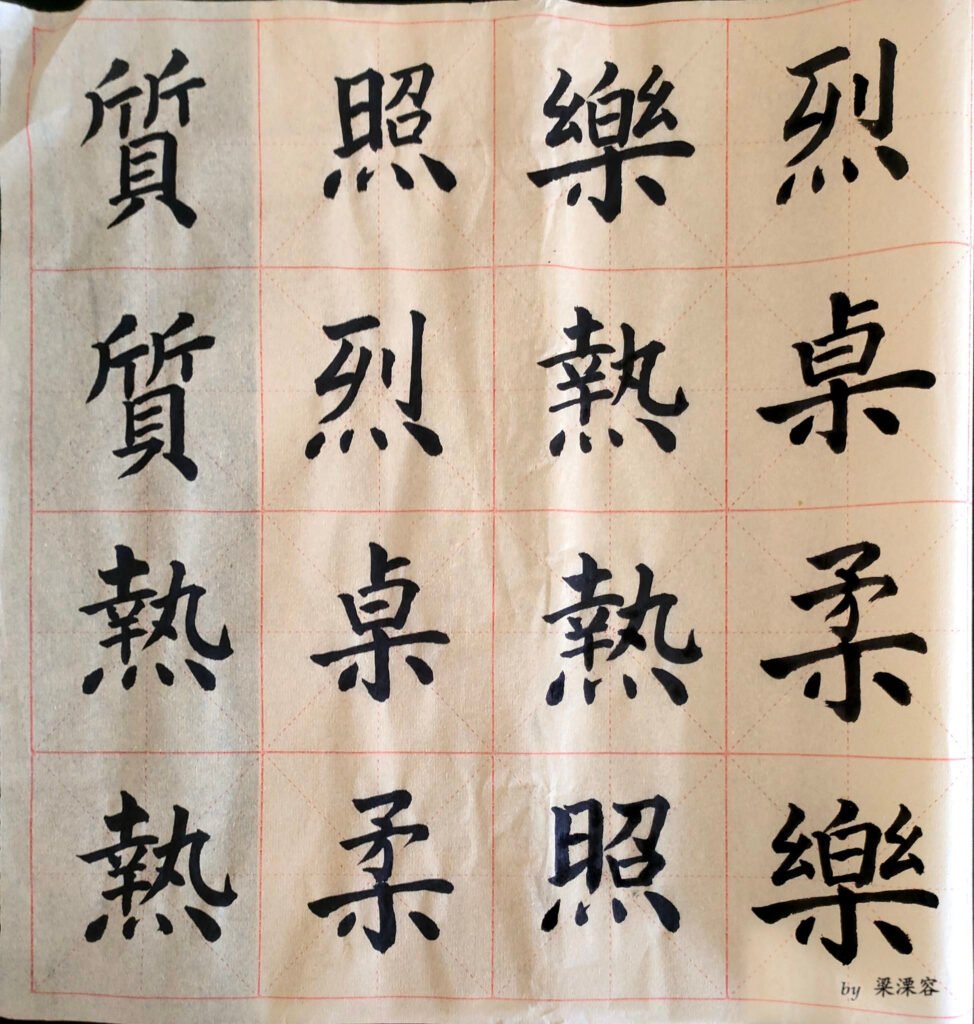 烈桌柔樂
樂熱熱照
照烈桌柔
質質熱熱
by 梁溧容